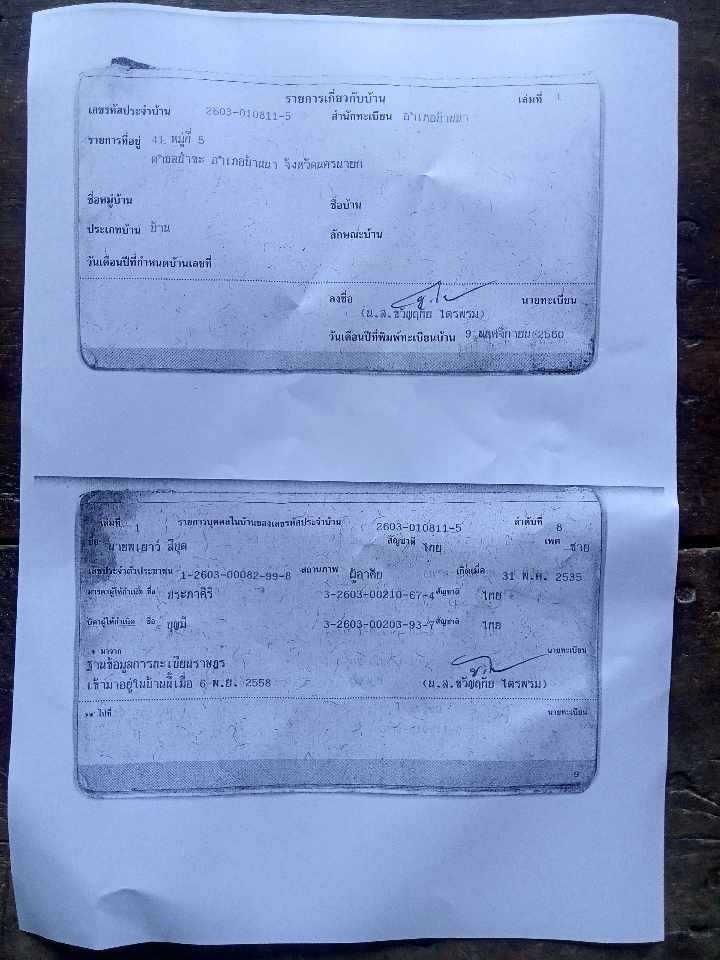 รายการเกี่ยวกับบ้าน เล่มที่ 1
เลขรหัสประจำบ้าน 2603-010811-5 สำนักทะเบียน อำเภอบ้านนา
รายการที่อยู่ 41 หมู่ที่ 5
ตำบลป่าขะ อำเภอบ้านนา จังหวัดนครนายก
ชื่อหมู่บ้าน ชื่อบ้าน
ประเภทบ้าน บ้าน ลักษณะบ้าน
วันเดือนปีที่กำหนดบ้านเลขที่
ลงชื่อ นายทะเบียน
(น.ส.ขวัญฤทัย ไตรพรม)
วันเดือนปีที่พิมพ์ทะเบียนบ้าน 9 พฤศจิกายน 2560
เล่มที่ 1 รายการบุคคลในบ้านของเลขรหัสประจำบ้าน 2603-010811-5 ลำดับที่ 8
ชื่อ นายพเยาว์ สีบุด สัญชาติ ไทย เพศ ชาย
เลขประจำตัวประชาชน 1-2603-00082-99-8 สถานภาพ ผู้อาศัย เกิดเมื่อ 31 พ.ค. 2535
มารดาผู้ให้กำเนิด ชื่อ ประภาศิริ 3-2603-00210-67-4 สัญชาติ ไทย
บิดาผู้ให้กำเนิด ชื่อ บุญมี 3-2603-00203-93-7 สัญชาติ ไทย
* มาจาก นายทะเบียน
ฐานข้อมูลการทะเบียนราษฎร
เข้ามาอยู่ในบ้านนี้เมื่อ 6 พ.ย. 2558 (น.ส.ขวัญฤทัย ไตรพรม)
** ไปที่ นายทะเบียน
9